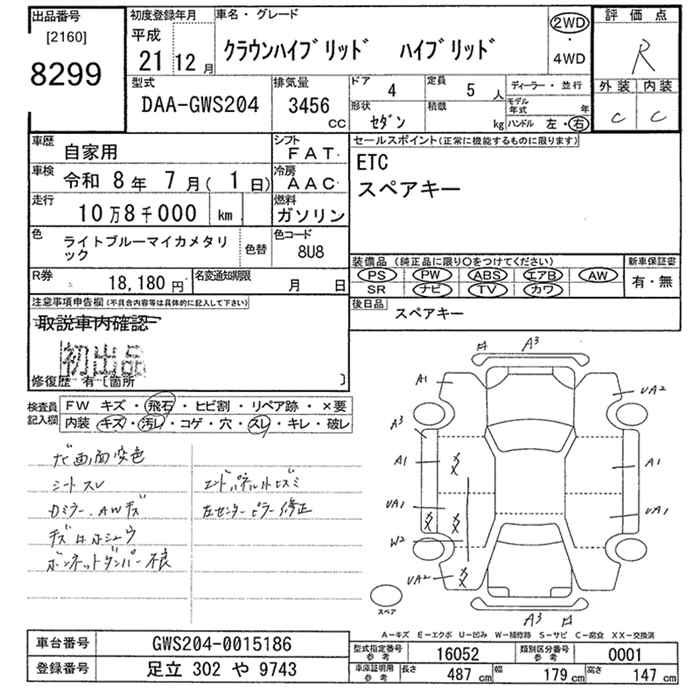 出品番号
[2160]
8299
初度登録年月
平成
21 12月
車名・グレード
クラウンハイブリッド ハイブリッド
2WD
・
4WD
評価点
R
外装 内装
C C
型式
DAA-GWS204
排気量
3456
CC
ドア
4
定員
5人
ディーラー・並行
形状
セダン
積載
kg
モデル年式
年
ハンドル 左・右
車歴
自家用
シフト
FAT
車検
令和 8年 7月( 1日)
冷房
AAC
走行
10万8千000 km
燃料
ガソリン
色
ライトブルーマイカメタリック
色替
色コード
8U8
R券
18,180円
名変通知期限
月 日
セールスポイント(正常に機能するものに限ります)
ETC
スペアキー
装備品(純正品に限り○をつけてください)
PS PW ABS エアB AW
SR ナビ TV カワ
新車保証書
有・無
後日品
スペアキー
注意事項申告欄(不具合内容等は具体的に記入して下さい)
取説車内確認
初出品
修復歴 有〔箇所 〕
検査員記入欄
FW キズ・飛石・ヒビ割・リペア跡・×要
内装・キズ・汚レ・コゲ・穴・スレ・キレ・破レ
ナビ画面変色
シートスレ
Dミラー、AWキズ
キズ有ホシュウ
ボンネットダンパー不良
エンドパネル外ヒズミ
左センターピラー修正
A3
A1
UA2
A3
A1
XX
A1
UA1
XX
XX
UA1
W2
UA2
XX
A3
スペア
A-キズ E-エクボ U-凹み W-補修跡 S-サビ C-腐食 XX-交換済
車台番号
GWS204-0015186
登録番号
足立 302 や 9743
型式指定番号
参考
16052
類別区分番号
参考
0001
車庫証明用
参考
長さ
487cm
幅
179cm
高さ
147cm